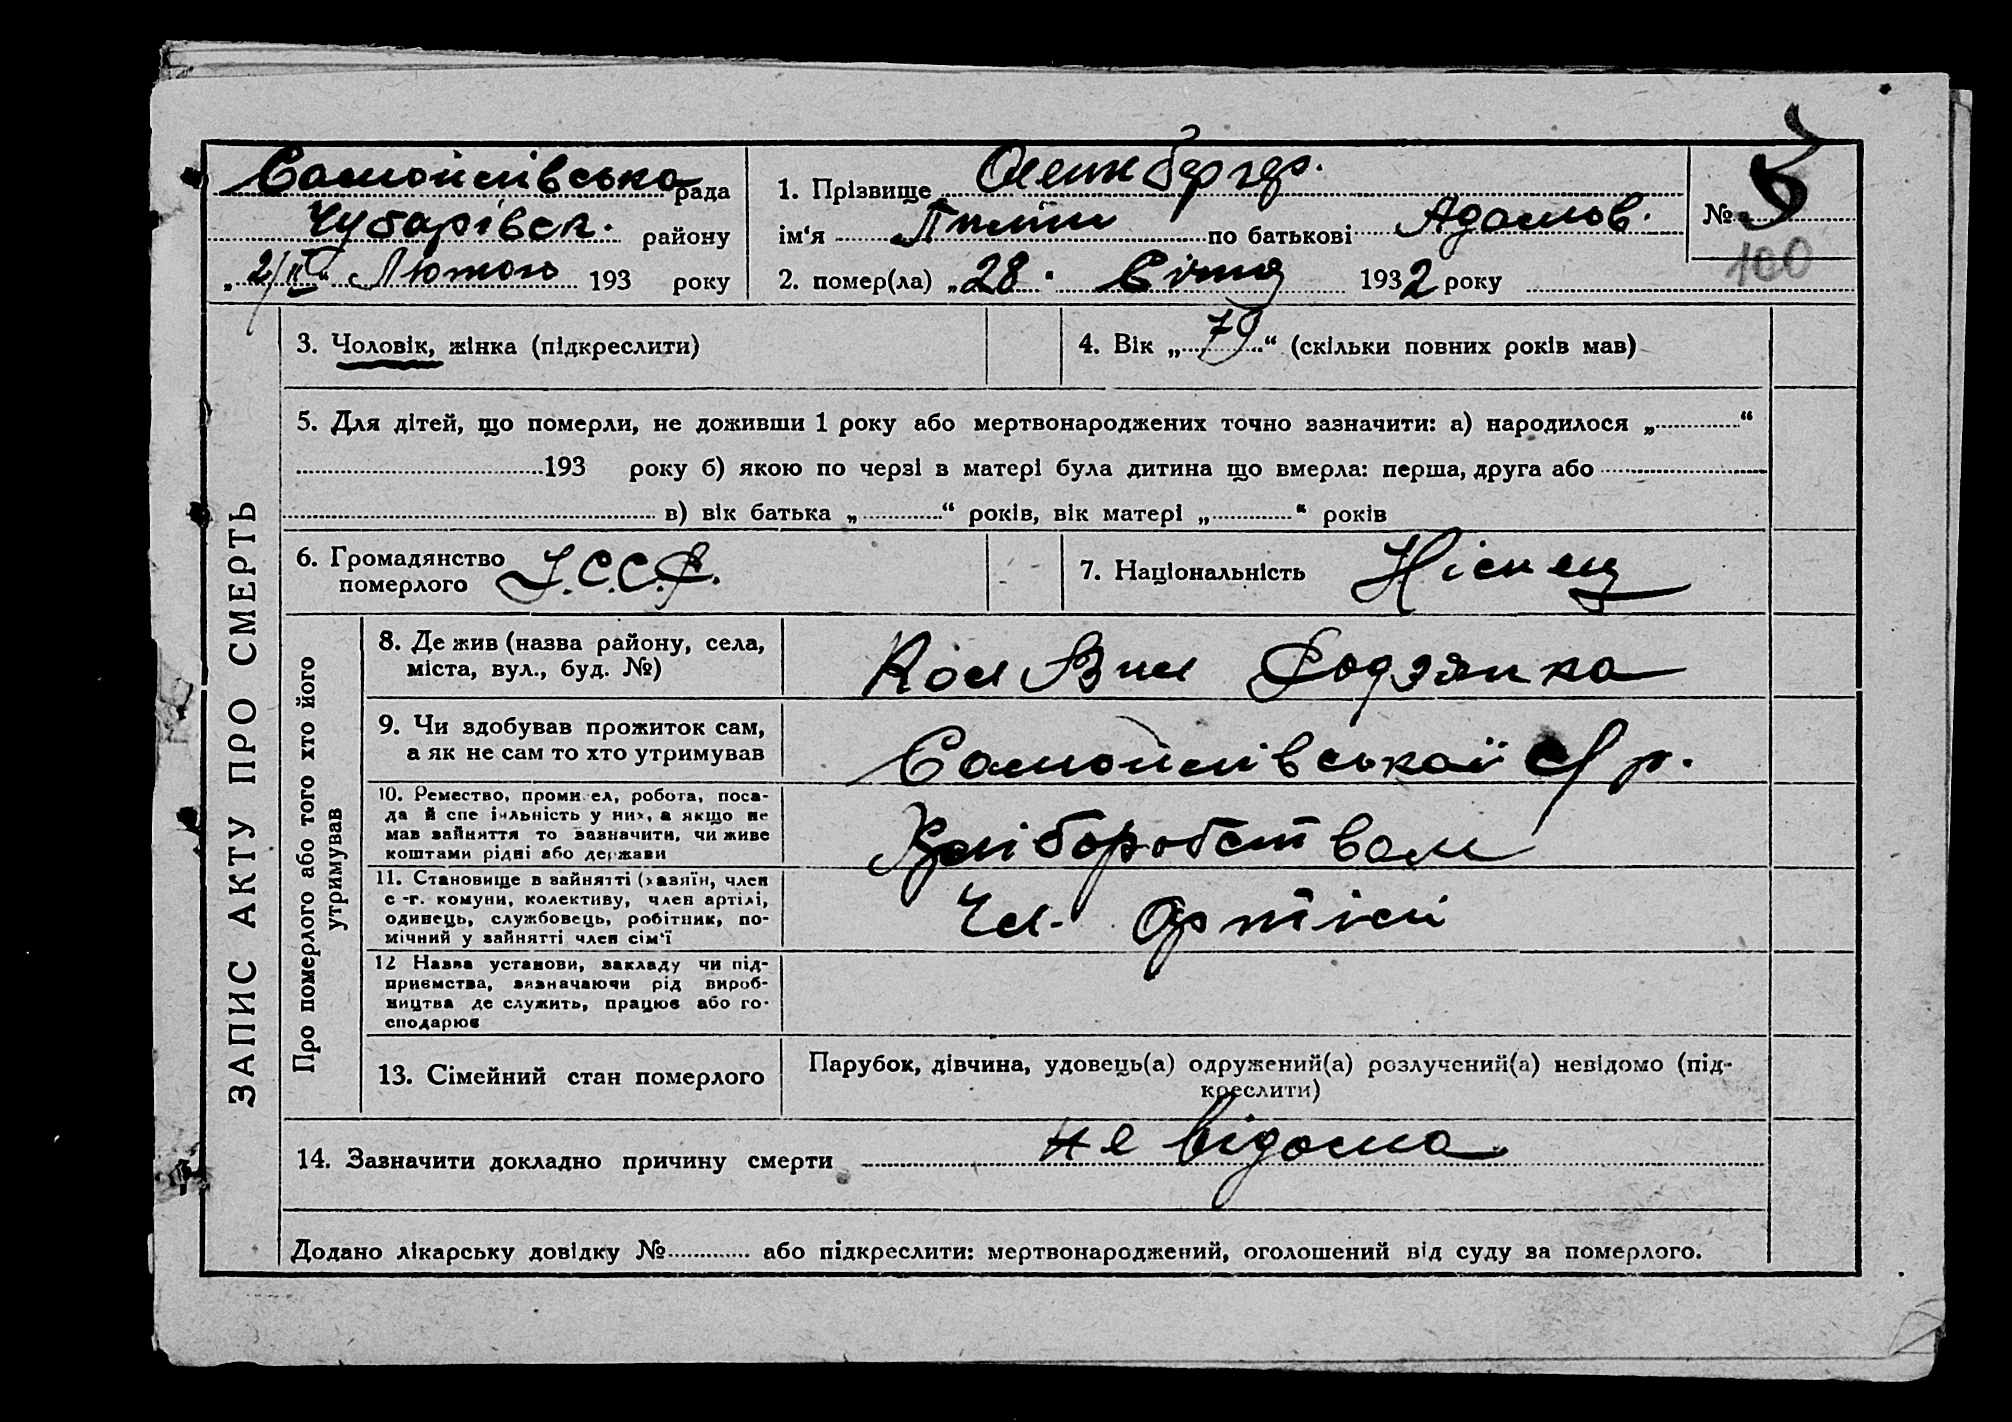 Самойлівська рада
Чубарівськ. району
„2/II“ Лютого 193 року
1. Прізвище
ім'я по батькові Адамов.
2. помер(ла) „28. Січня 1932 року
№ 5
100
ЗАПИС АКТУ ПРО СМЕРТЬ
3. Чоловік, жінка (підкреслити)
4. Вік „70“ (скільки повних років мав)
5. Для дітей, що померли, не доживши 1 року або мертвонароджених точно зазначити: а) народилося „ “
193 року б) якою по черзі в матері була дитина що вмерла: перша, друга або
в) вік батька „ “ років, вік матері „ “ років
6. Громадянство
померлого У.С.С.Р.
7. Національність Німець
Про померлого або того хто його
утримував
8. Де жив (назва району, села,
міста, вул., буд. №)
Кол Вил Родзянка
9. Чи здобував прожиток сам,
а як не сам то хто утримував
Самойлівської с/р.
10. Ремество, промисел, робота, поса-
да й спеціяльність у них, а якщо не
мав зайняття то зазначити, чи живе
коштами рідні або держави
Хліборобством
11. Становище в зайнятті (хазяїн, член
с.-г. комуни, колективу, член артілі,
одинець, службовець, робітник, по-
мічний у зайнятті член сім'ї
Чл. Артілі
12 Назва установи, закладу чи під-
приємства, зазначаючи рід вироб-
ництва де служить, працює або го-
сподарює
13. Сімейний стан померлого
Парубок, дівчина, удовець(а) одружений(а) розлучений(а) невідомо (під-
креслити)
14. Зазначити докладно причину смерти не відома
Додано лікарську довідку № або підкреслити: мертвонароджений, оголошений від суду за померлого.